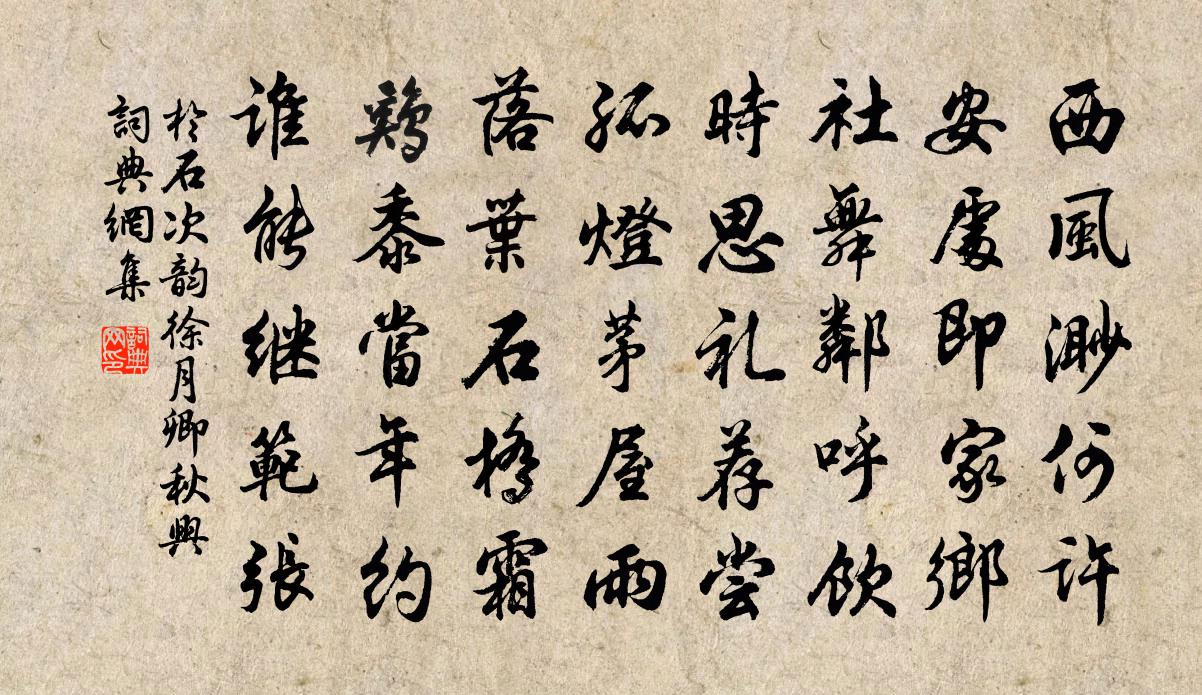 西風渺何許
安處即家鄉
社舞鄰呼飲
時思礼荐尝
孤燈茅屋雨
落葉石橋霜
鷄黍當年約
谁能继範張
於石次韵徐月卿秋興
詞典網集
詞典网印